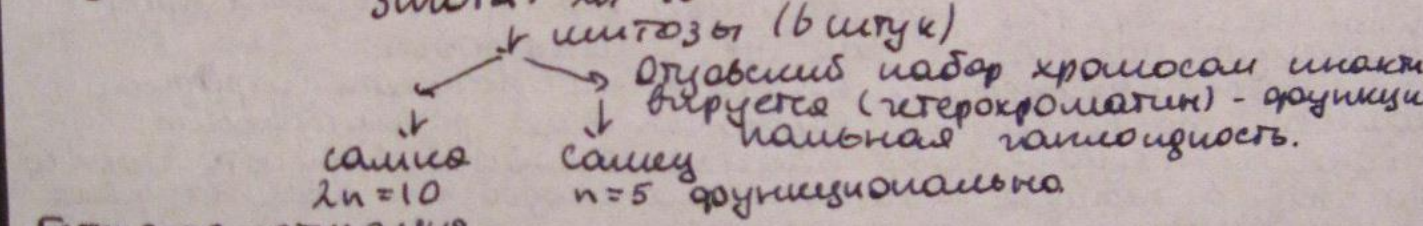 митозы (6 штук)
Отцовский набор хромосом инакти
вируется (гетерохроматин) - функци
нальная гаплоидность.
самка самец
2n=10 n=5 функционально